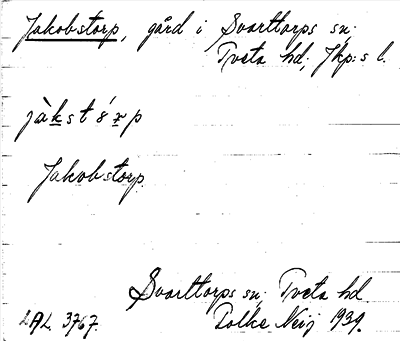 Jakobstorp, gård i Svarttorps sn;
Tveta hd; Jkp:s l.
jàkstórp
Jakobstorp
Svarttorps sn; Tveta hd.
LAL 3767. Folke Neij 1939.